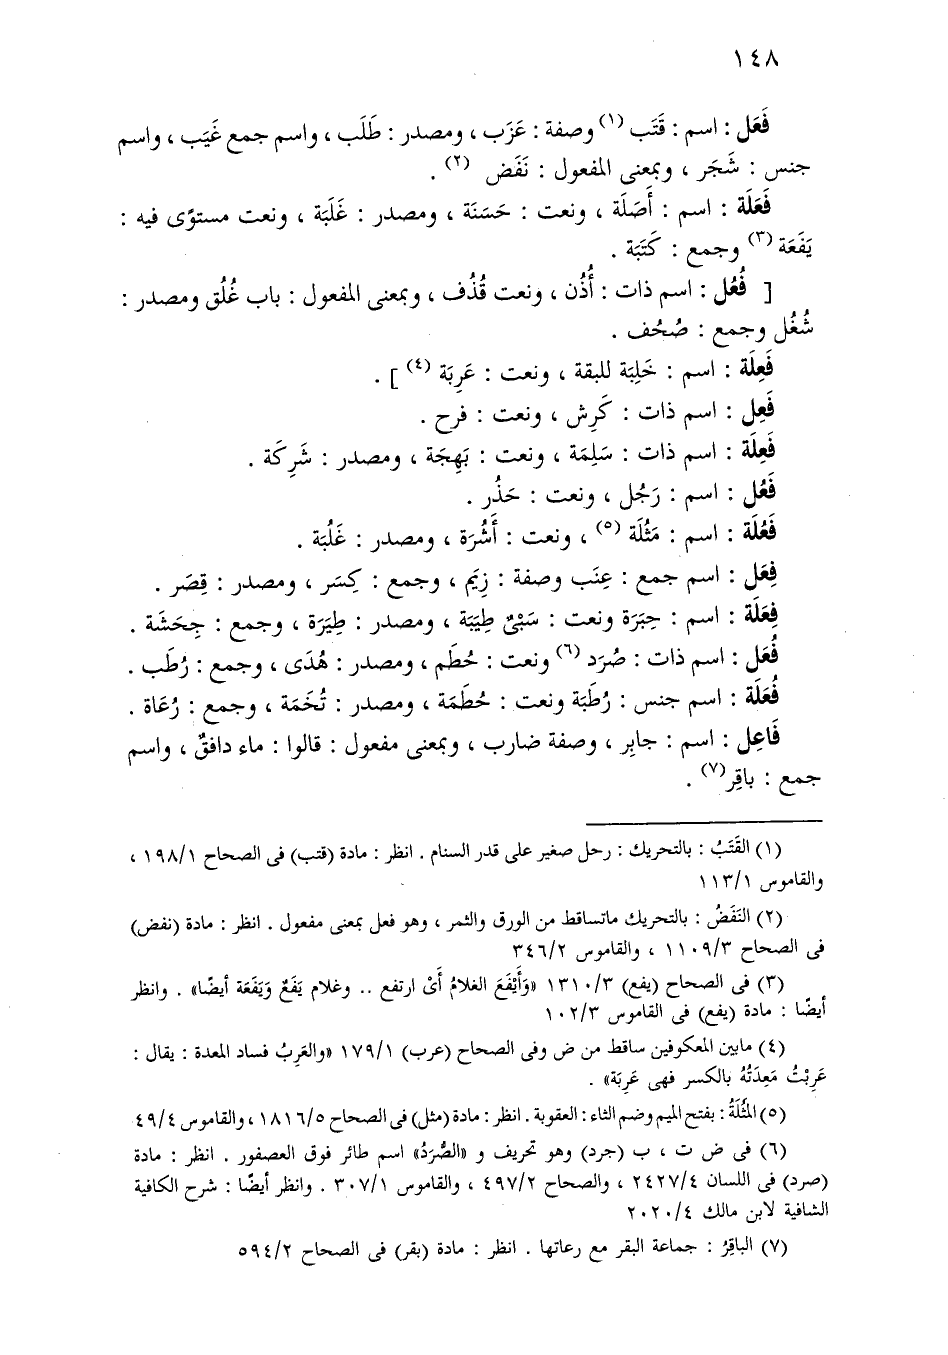 ١٤٨
فَعَل : اسم : قَتَب (١) وصفة : عَزَب ، ومصدر : طَلَب ، واسم جمع غَيَب ، واسم
جنس : شَجَر ، وبمعنى المفعول : نَفَض (٢) .
فَعَلَة : اسم : أَصَلَة ، ونعت : حَسَنَة ، ومصدر : غَلَبَة ، ونعت مستوًى فيه :
يَفَعَة (٣) وجمع : كَتَبَة .
[ فُعُل : اسم ذات : أُذُن ، ونعت قُذُف ، وبمعنى المفعول : باب غُلُق ومصدر :
شُغُل وجمع : صُحُف .
فَعِلَة : اسم : خَلِبَة للبقة ، ونعت : عَرِبَة (٤) ] .
فَعِل : اسم ذات : كَرِش ، ونعت : فرح .
فَعِلَة : اسم ذات : سَلِمَة ، ونعت : بَهِجَة ، ومصدر : شَرِكَة .
فَعُل : اسم : رَجُل ، ونعت : حَذُر .
فَعُلَة : اسم : مَثُلَة (٥) ، ونعت : أَشُرَة ، ومصدر : غَلُبَة .
فِعَل : اسم جمع : عِنَب وصفة : زِيَم ، وجمع : كِسَر ، ومصدر : قِصَر .
فِعَلَة : اسم : حِبَرَة ونعت : سَبْىٌ طِيَبَة ، ومصدر : طِيَرَة ، وجمع : جِحَشَة .
فُعَل : اسم ذات : صُرَد (٦) ونعت : حُطَم ، ومصدر : هُدَى ، وجمع : رُطَب .
فُعَلَة : اسم جنس : رُطَبَة ونعت : حُطَمَة ، ومصدر : تُخَمَة ، وجمع : رُعَاة .
فَاعِل : اسم : جابِر ، وصفة ضارب ، وبمعنى مفعول : قالوا : ماء دافقٌ ، واسم
جمع : باقِر (٧) .
(١) القَتَبُ : بالتحريك : رحل صغير على قدر السنام . انظر : مادة (قتب) فى الصحاح ١٩٨/١ ،
والقاموس ١١٣/١
(٢) النَفَضُ : بالتحريك ماتساقط من الورق والثمر ، وهو فعل بمعنى مفعول . انظر : مادة (نفض)
فى الصحاح ١١٠٩/٣ ، والقاموس ٣٤٦/٢
(٣) فى الصحاح (يفع) ١٣١٠/٣ «وَأَيْفَعَ الغلامُ أَىْ ارتفع .. وغلام يَفَعٌ وَيَفَعَة أيضًا» . وانظر
أيضًا : مادة (يفع) فى القاموس ١٠٢/٣
(٤) مابين المعكوفين ساقط من ض وفى الصحاح (عرب) ١٧٩/١ «والعَرِبُ فساد المعدة : يقال :
عَرِبْتُ مَعِدَتُهُ بالكسر فهى عَرِبَة» .
(٥) المَثُلَةُ : بفتح الميم وضم الثاء : العقوبة . انظر : مادة (مثل) فى الصحاح ١٨١٦/٥ ، والقاموس ٤٩/٤
(٦) فى ض ت ، ب (جرد) وهو تحريف و «الصُّرَدُ» اسم طائر فوق العصفور . انظر : مادة
(صرد) فى اللسان ٢٤٢٧/٤ ، والصحاح ٤٩٧/٢ ، والقاموس ٣٠٧/١ . وانظر أيضًا : شرح الكافية
الشافية لابن مالك ٢٠٢٠/٤
(٧) الباقِرُ : جماعة البقر مع رعاتها . انظر : مادة (بقر) فى الصحاح ٥٩٤/٢